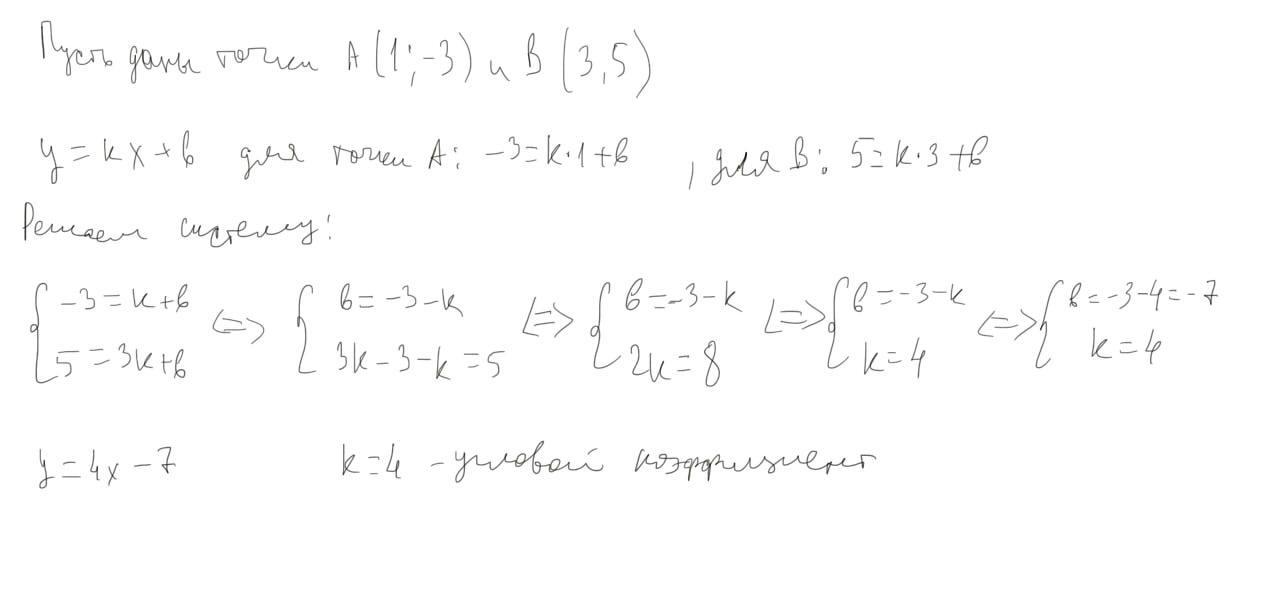 Пусть даны точки A (1; -3) и B (3, 5)
y = kx + b для точки A: -3 = k·1 + b , для B: 5 = k·3 + b
Решаем систему:
{ -3 = k + b <=> { b = -3 - k <=> { b = -3 - k <=> { b = -3 - k <=> { b = -3 - 4 = -7
5 = 3k + b 3k - 3 - k = 5 2k = 8 k = 4 k = 4
y = 4x - 7 k = 4 - угловой коэффициент